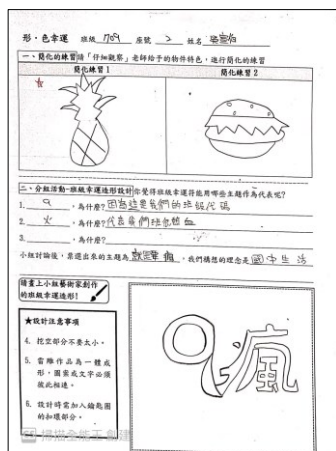 形‧色幸運 班級 709 座號 2 姓名
一、簡化的練習請「仔細觀察」老師給予的物件特色,進行簡化的練習
簡化練習1 簡化練習2
二、分組活動-班級幸運造形設計你覺得班級幸運符能用哪些主題作為代表呢?
1. 9 ,為什麼?因為這是我們的班級代碼
2. 火 ,為什麼?代表我們班熱血
3. ,為什麼?
小組討論後,票選出來的主題為 ,我們構想的理念是 國中生活
請畫上小組藝術家創作
的班級幸運造形!
★設計注意事項
4. 挖空部分不要太小。
5. 雷雕作品為一體成
形,圖案或文字必須
彼此相連。
6. 設計時需加入鑰匙圈
的扣環部分。
9瘋
CS 掃描全能王 創建